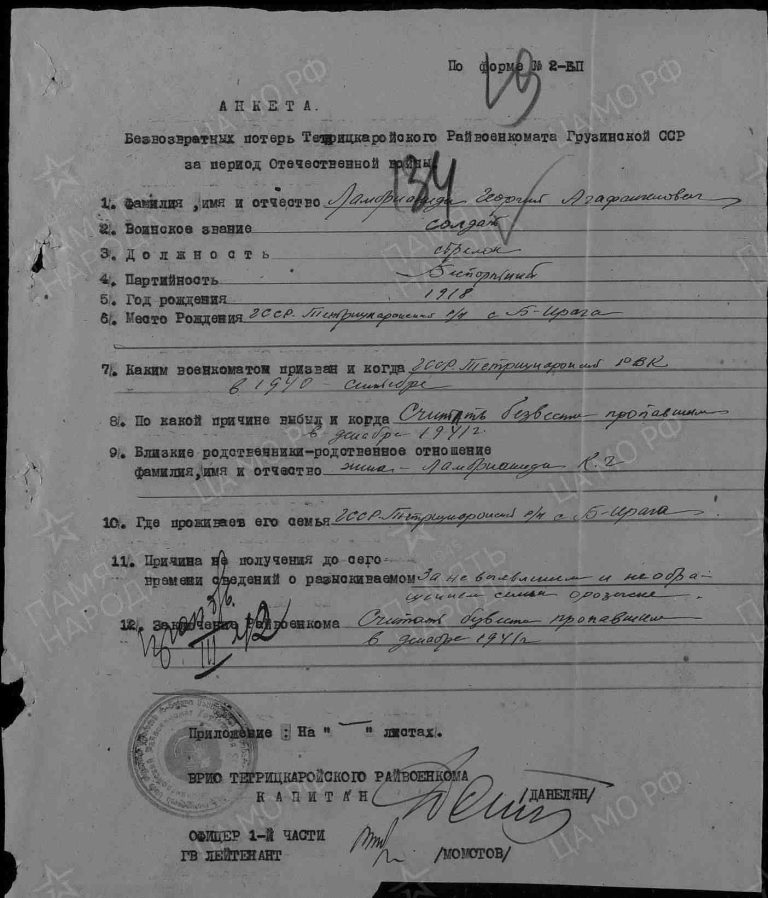 По форме № 2-БП
19
АНКЕТА.
Безвозвратных потерь Тетрицкаройского Райвоенкомата Грузинской ССР
за период Отечественной войны
134
1. Фамилия ,имя и отчество Ламбрианиди Георгий
2. Воинское звание солдат
3. Должность стрелок
4. Партийность Беспартийный
5. Год рождения 1918
6. Место Рождения ГССР. Тетрицкаройский р/н с Б-Ирага
7. Каким военкоматом призван и когда ГССР Тетрицкаройский РВК
в 1940 - сентябре
8. По какой причине выбыл и когда Считать безвести пропавшим
в декабре 1941 г.
9. Близкие родственники-родственное отношение
фамилия,имя и отчество жена - Ламбрианиди К. Г
10. Где проживает его семья ГССР Тетрицкаройский р/н с Б-Ирага
11. Причина не получения до сего
времени сведений о разыскиваемом За не выявлением и не обра-
щением семьи о розыске.
12. Заключение Райвоенкома Считать безвести пропавшим
в декабре 1941 г
Приложение : На " — " листах.
ВРИО ТЕТРИЦКАРОЙСКОГО РАЙВОЕНКОМА
КАПИТАН /ДАВЕЛЯН/
ОФИЦЕР 1-Й ЧАСТИ
ГВ ЛЕЙТЕНАНТ /МОМОТОВ/
ЦАМО.РФ
ПАМЯТЬ НАРОДА